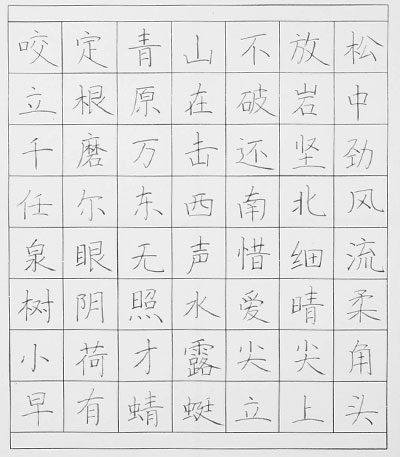 咬定青山不放松
立根原在破岩中
千磨万击还坚劲
任尔东西南北风
泉眼无声惜细流
树阴照水爱晴柔
小荷才露尖尖角
早有蜻蜓立上头